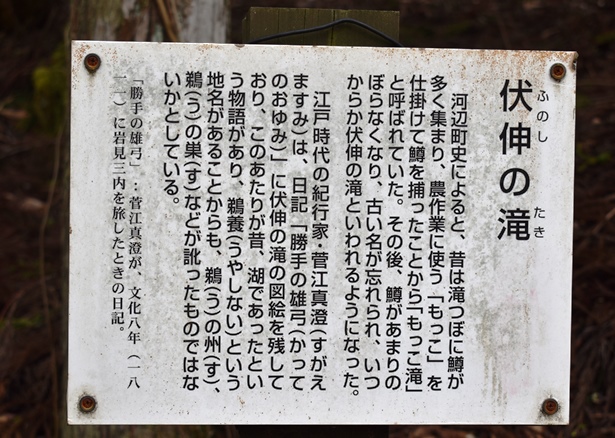 伏伸の滝
ふのし
たき
河辺町史によると、昔は滝つぼに鱒が
多く集まり、農作業に使う「もっこ」を
仕掛けて鱒を捕ったことから「もっこ滝」
と呼ばれていた。その後、鱒があまりの
ぼらなくなり、古い名が忘れられ、いつ
からか伏伸の滝といわれるようになった。
江戸時代の紀行家・菅江真澄(すがえ
ますみ)は、日記「勝手の雄弓(かって
のおゆみ)」に伏伸の滝の図絵を残して
おり、このあたりが昔、湖であったとい
う物語があり、鵜養(うやしない)という
地名があることからも、鵜(う)の州(す)、
鵜(う)の巣(す)などが訛ったものではな
いかとしている。
「勝手の雄弓」:菅江真澄が、文化八年(一八
一一)に岩見三内を旅したときの日記。